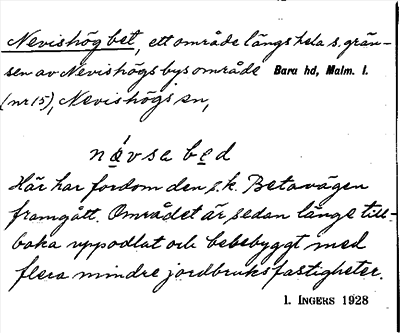 Nevishög bet, ett område längs hela s. grän-
sen av Nevishögs bys område Bara hd, Malm. l.
(nr 15), Nevishögs sn,
nǽvsa bed
Här har fordom den s.k. Betavägen
framgått. Området är sedan länge till-
baka uppodlat och bebebyggt med
flera mindre jordbruksfastigheter.
I. INGERS 1928